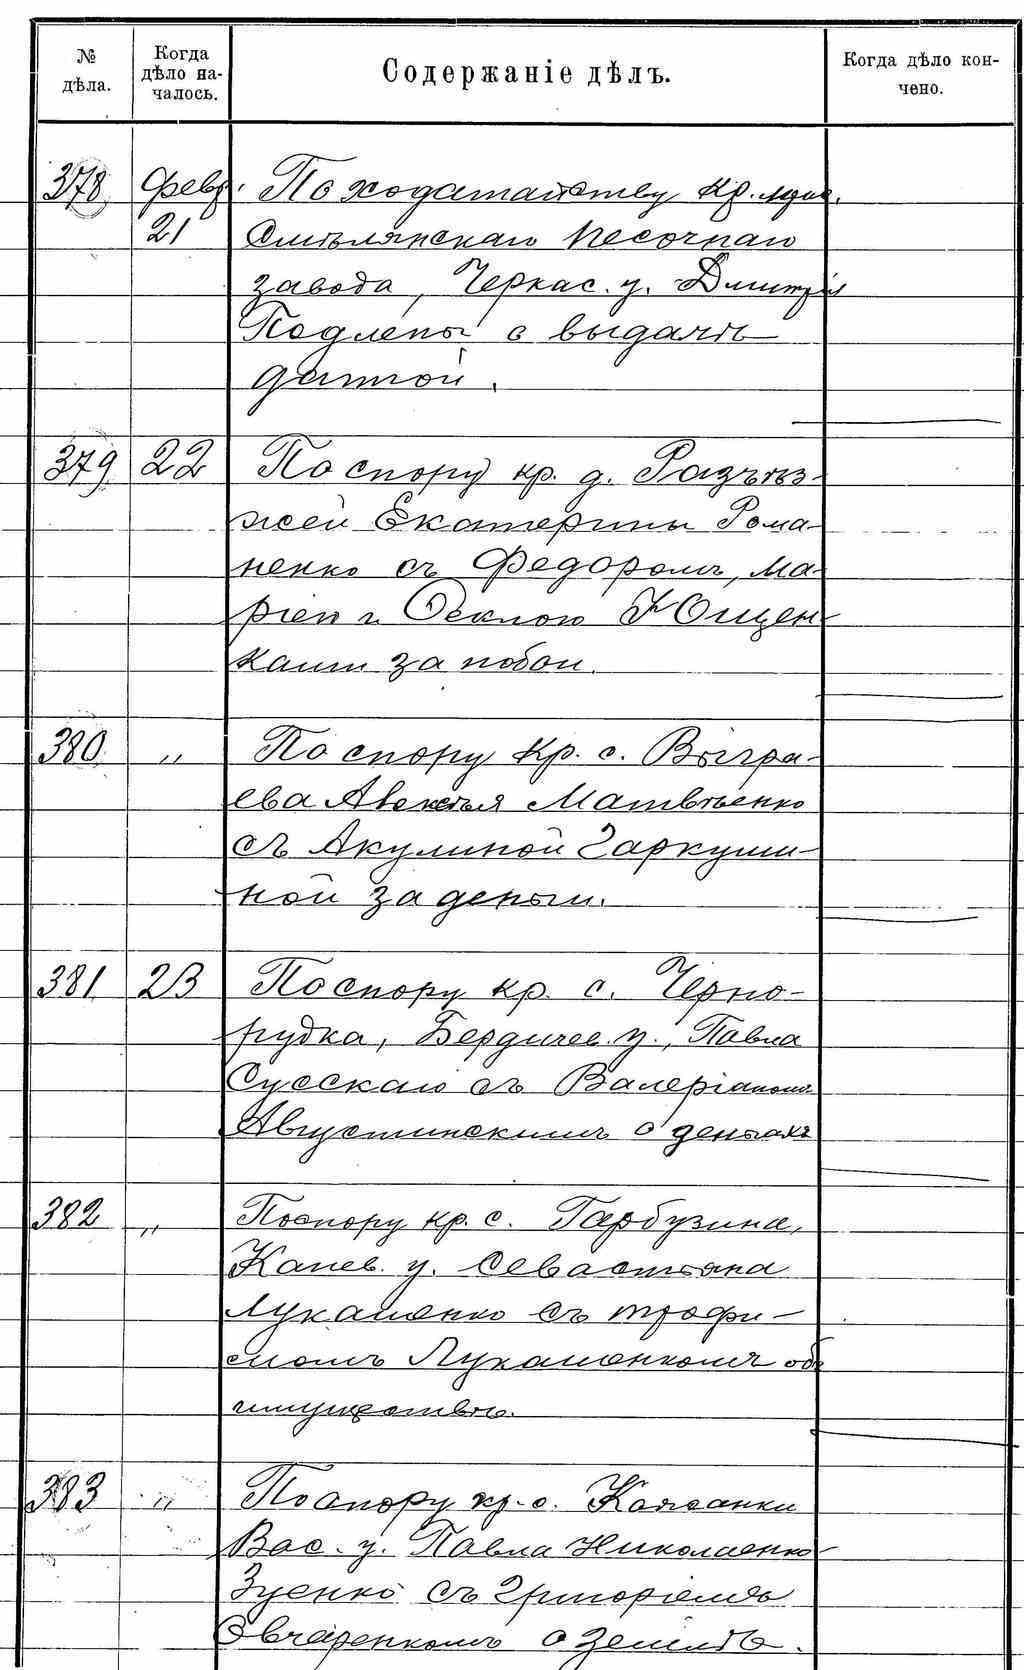 №
дѣла.
Когда
дѣло на-
чалось.
Содержаніе дѣлъ.
Когда дѣло кон-
чено.
378 Февр. По ходатайству Кр.
21 Смѣлянскаго песочнаго
завода, Черкас. у. Дмитрія
Подлепы о выдачѣ
данной.
379 22 По спору кр. д. Разъѣз-
жей Екатерины Рома-
ненко съ Федоромъ, Ма-
ріей и Ѳеклою Ющен-
ками за побои.
380 „ По спору Кр. с. Выгра-
ева Авксетья Матвѣенко
съ Акулиной Гаркуши-
ной за деньги.
381 23 По спору кр. с. Черно-
рудка, Бердичев. у., Павла
Сусскаго съ Валеріаномъ
Августинскимъ о деньгахъ
382 „ По спору кр. с. Гарбузина,
Канев. у. Севастьяна
Лукаменко съ Трофи-
момъ Лукаменкомъ объ
имуществѣ.
383 „ По спору кр. с. Кожанки
Вас. у. Павла Николаенко-
Зуенко съ Григоріемъ
Овчаренкомъ о землѣ.